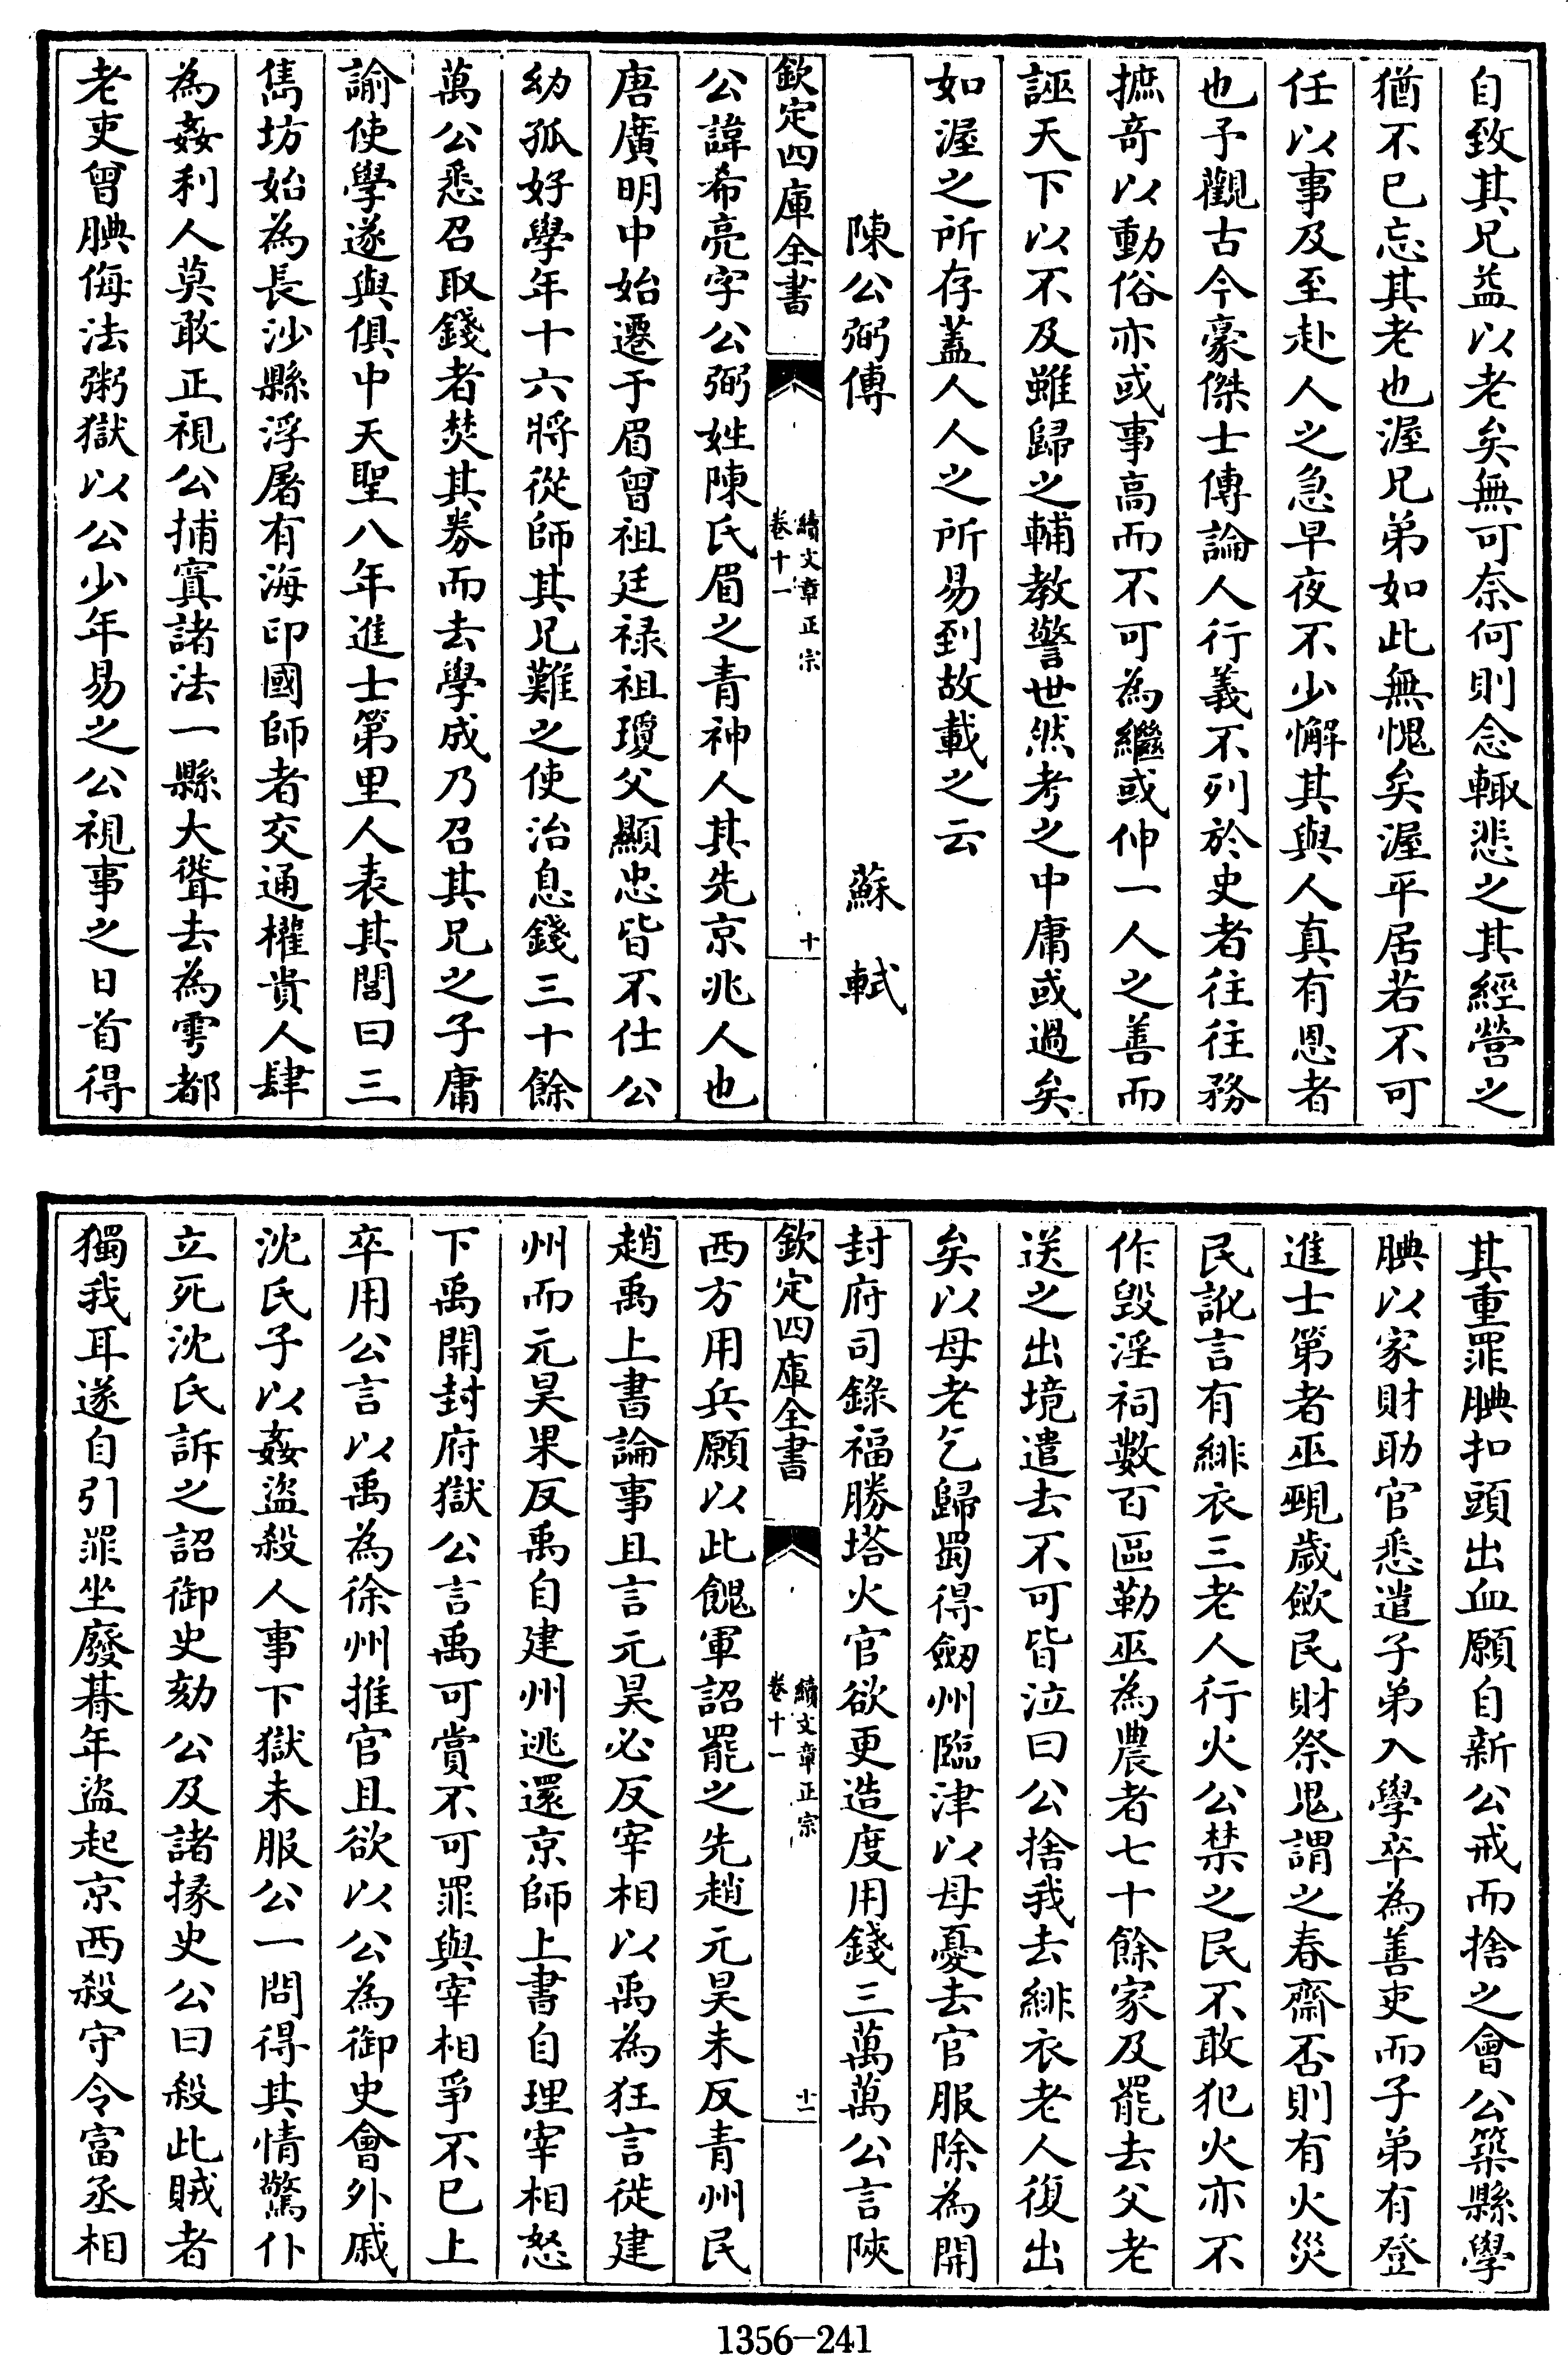 自致其兄益以老矣無可奈何則念輙悲之其經營之
猶不已忘其老也渥兄弟如此無愧矣渥平居若不可
任以事及至赴人之急早夜不少懈其與人真有恩者
也予觀古今豪傑士傳論人行義不列於史者往往務
摭竒以動俗亦或事高而不可為繼或伸一人之善而
誣天下以不及雖歸之輔教警世然考之中庸或過矣
如渥之所存蓋人人之所易到故載之云
陳公弼傳 蘇軾
欽定四庫全書 續文章正宗 卷十一 十
公諱希亮字公弼姓陳氏眉之青神人其先京兆人也
唐廣明中始遷于眉曾祖廷禄祖瓊父顯忠皆不仕公
幼孤好學年十六將從師其兄難之使治息錢三十餘
萬公悉召取錢者焚其劵而去學成乃召其兄之子庸
諭使學遂與俱中天聖八年進士第里人表其閭曰三
雋坊始為長沙縣浮屠有海印國師者交通權貴人肆
為姦利人莫敢正視公捕寘諸法一縣大聳去為雩都
老吏曾腆侮法粥獄以公少年易之公視事之日首得
其重罪腆扣頭出血願自新公戒而捨之會公築縣學
腆以家財助官悉遣子弟入學卒為善吏而子弟有登
進士第者巫覡歲歛民財祭鬼謂之春齋否則有火災
民訛言有緋衣三老人行火公禁之民不敢犯火亦不
作毀淫祠數百區勒巫為農者七十餘家及罷去父老
送之出境遣去不可皆泣曰公捨我去緋衣老人復出
矣以母老乞歸蜀得劔州臨津以母憂去官服除為開
封府司錄福勝塔火官欲更造度用錢三萬萬公言陜
欽定四庫全書 續文章正宗 卷十一 十一
西方用兵願以此餽軍詔罷之先趙元昊未反青州民
趙禹上書論事且言元昊必反宰相以禹為狂言徙建
州而元昊果反禹自建州逃還京師上書自理宰相怒
下禹開封府獄公言禹可賞不可罪與宰相爭不已上
卒用公言以禹為徐州推官且欲以公為御史會外戚
沈氏子以姦盜殺人事下獄未服公一問得其情驚仆
立死沈氏訴之詔御史劾公及諸掾史公曰殺此賊者
獨我耳遂自引罪坐廢朞年盜起京西殺守令富丞相
1356-241